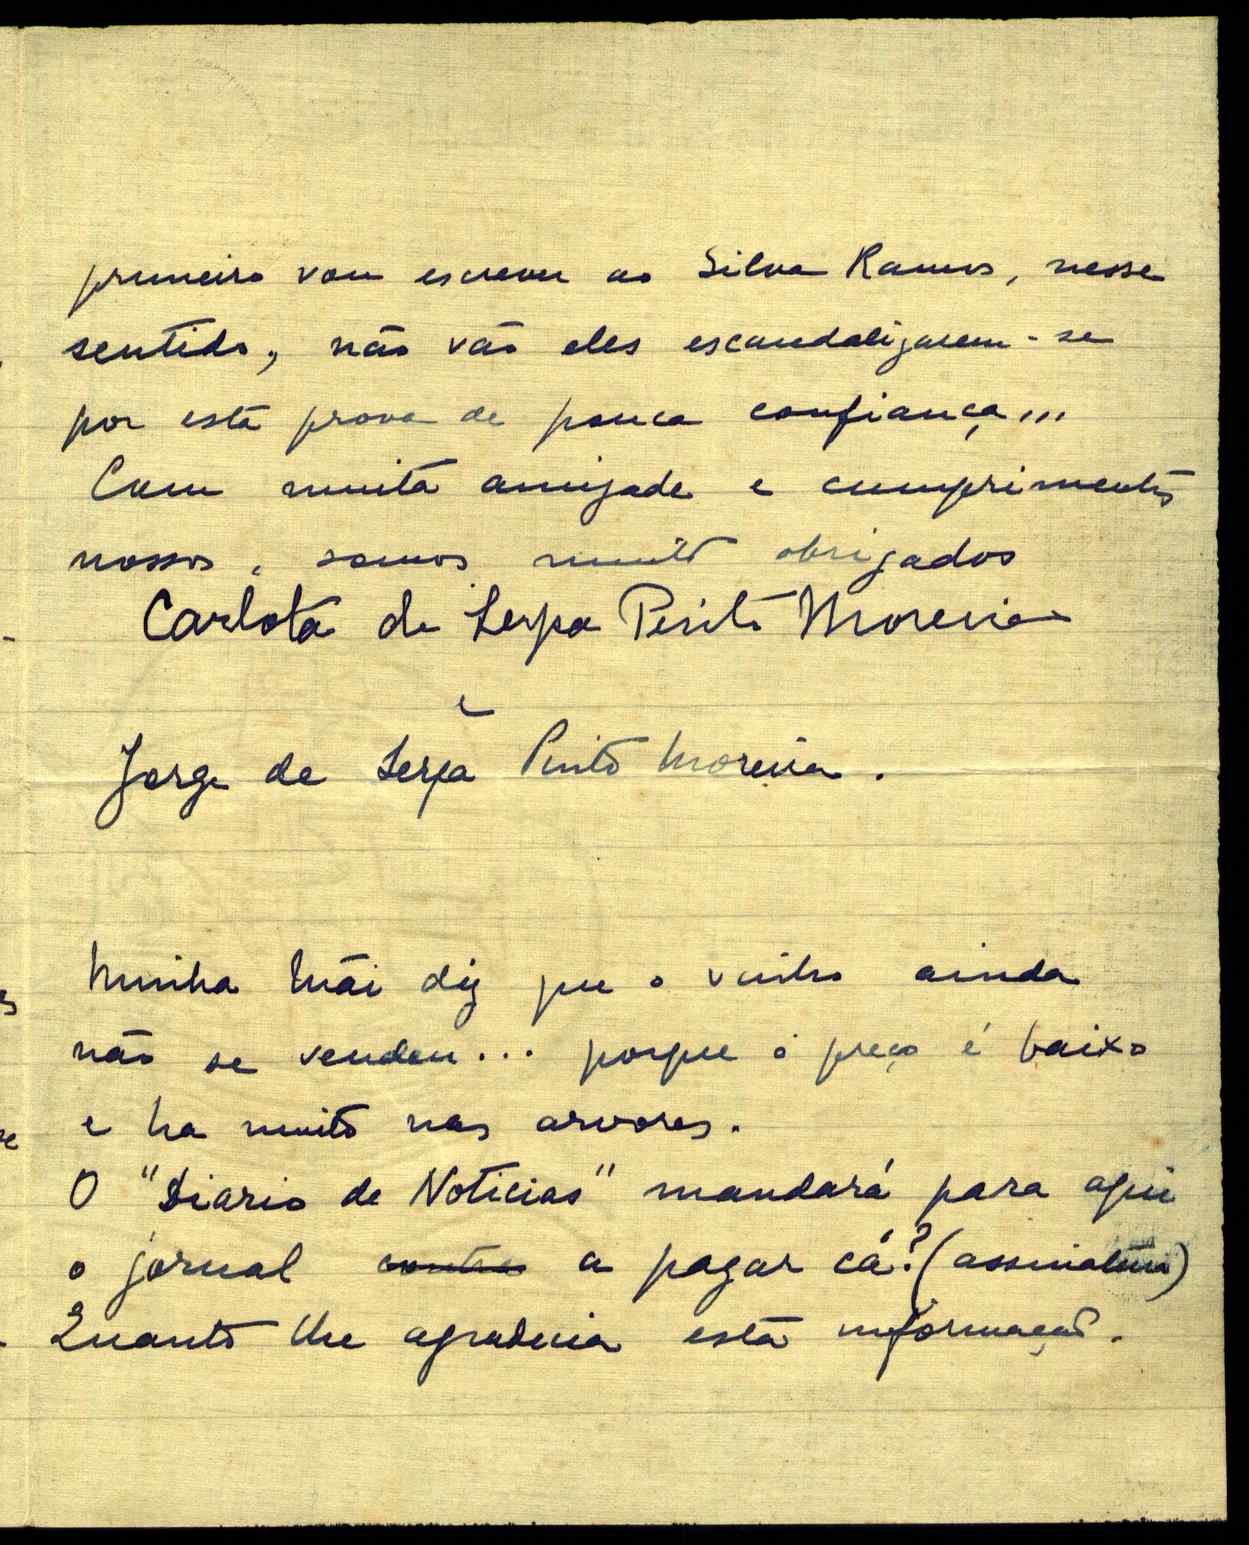 primeiro vou escrever ao Silva Ramos, nesse
sentido, não vão eles escandaligarem-se
por esta prova de pouca confiança...
Com muita amizade e cumprimentos
nossos, somos muito obrigados
Carlota de Serpa Pinto Moreira
e
Jorge de Serpa Pinto Moreira.
Minha Mãi diz que o vinho ainda
não se vendeu... porque o preço é baixo
e ha muito nas arvores.
O "Diario de Noticias" mandará para aqui
o jornal contra a pagar cá? (assinatura)
Quanto lhe agradecia esta informação.